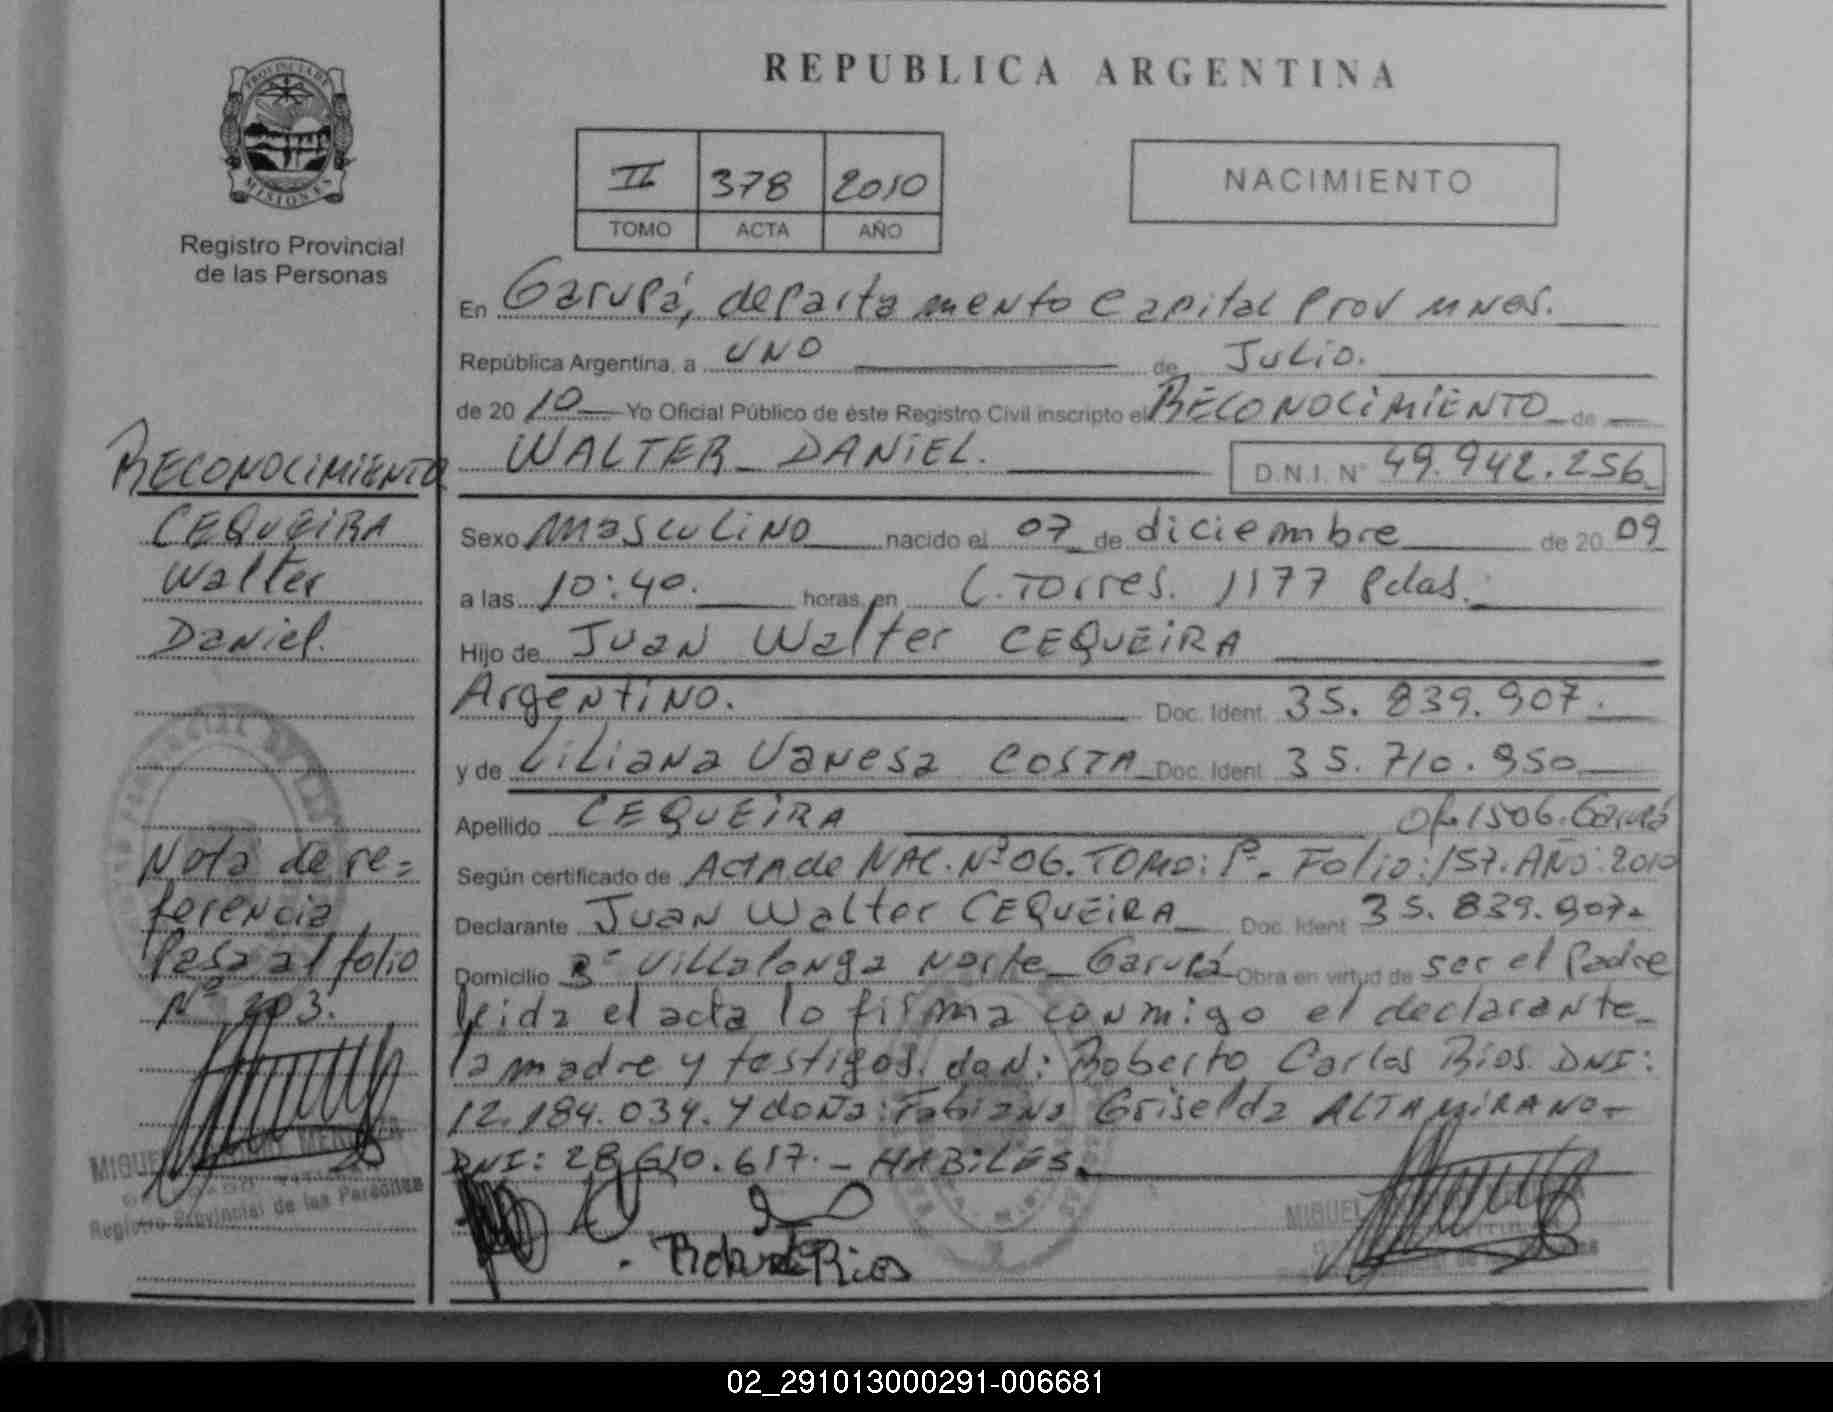 REPUBLICA ARGENTINA
PROVINCIA DE
MISIONES
Registro Provincial
de las Personas
II 378 2010
TOMO ACTA AÑO
NACIMIENTO
En Garupá, departamento Capital Prov Mnes.
República Argentina, a UNO de Julio.
de 20 10 Yo Oficial Público de éste Registro Civil inscripto el RECONOCIMIENTO de
WALTER DANIEL. D.N.I. N° 49.942.256
Sexo Masculino nacido el 07 de diciembre de 20 09
a las 10:40. horas, en C. Torres. 1177 Pdas.
Hijo de Juan Walter CEQUEIRA
Argentino. Doc. Ident. 35.839.907.
y de Liliana Vanesa COSTA Doc. Ident. 35.710.950
Apellido CEQUEIRA Of. 1506. Garupá
Según certificado de Acta de NAC. Nº 06. TOMO: Iº. Folio: 157. AÑO: 2010
Declarante Juan Walter CEQUEIRA Doc. Ident 35.839.907.
Domicilio Bº Villalonga Norte Garupá Obra en virtud de ser el Padre
leida el acta lo firma conmigo el declarante
la madre y testigos. don: Roberto Carlos Rios. DNI:
12.184.034. y doña: Fabiana Griselda ALTAMIRANO-
DNI: 28.610.617. - HABILES.
Roberto Rios
RECONOCIMIENTO
CEQUEIRA
Walter
Daniel.
Nota de re=
ferencia
Pasa al folio
Nº 203.
MIGUEL
Registro Provincial de las Personas
MIGUEL
02_291013000291-006681